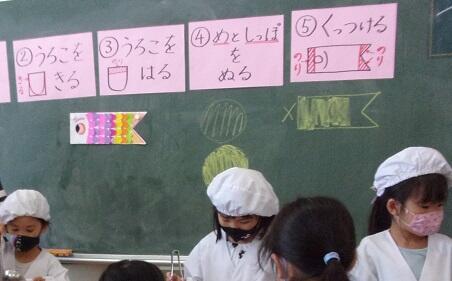 ②うろこを
きる
③うろこを
のり
はる
④めとしっぽ
を
ぬる
⑤くっつける
のり
のり